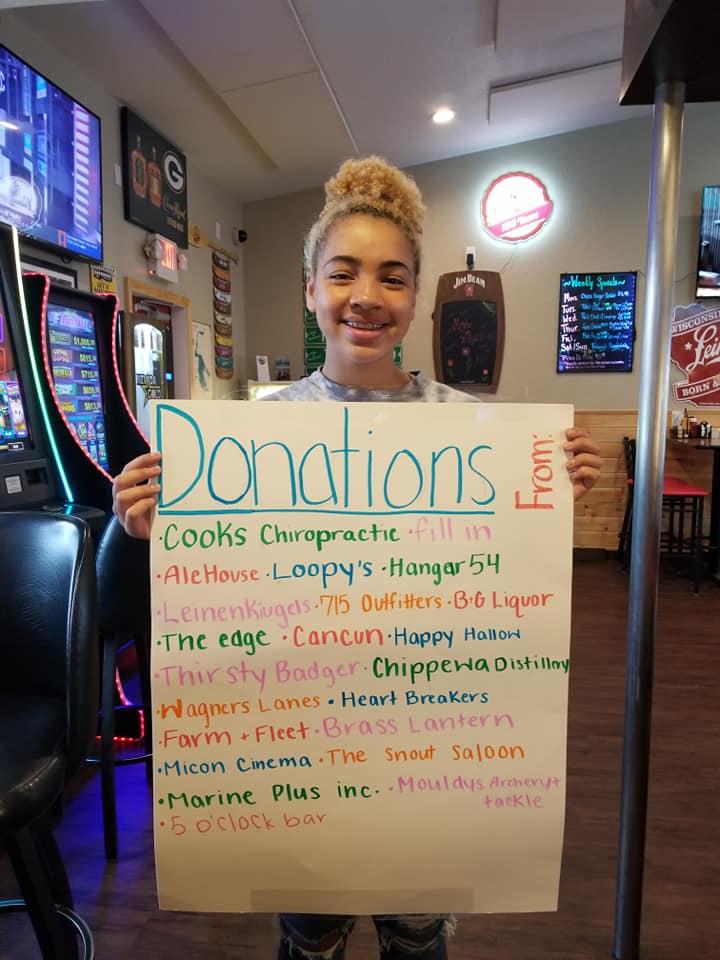 Donations From:
·Cooks Chiropractic ·fill in
·AleHouse ·Loopy's ·Hangar 54
·Leinenkiugels ·715 Outfitters ·B+G Liquor
·The edge ·Cancun ·Happy Hallow
·Thirsty Badger ·Chippewa Distillary
·Wagners Lanes ·Heart Breakers
·Farm + Fleet ·Brass Lantern
·Micon Cinema ·The Snout Saloon
·Marine Plus inc. ·Mouldys Archery+
tackle
·5 o'clock bar
G
JIM BEAM
Weekly Specials
Mon.
Tues.
Wed.
Thur.
Fri.
Sat/Sun.
WISCONSIN
Lei
BORN &